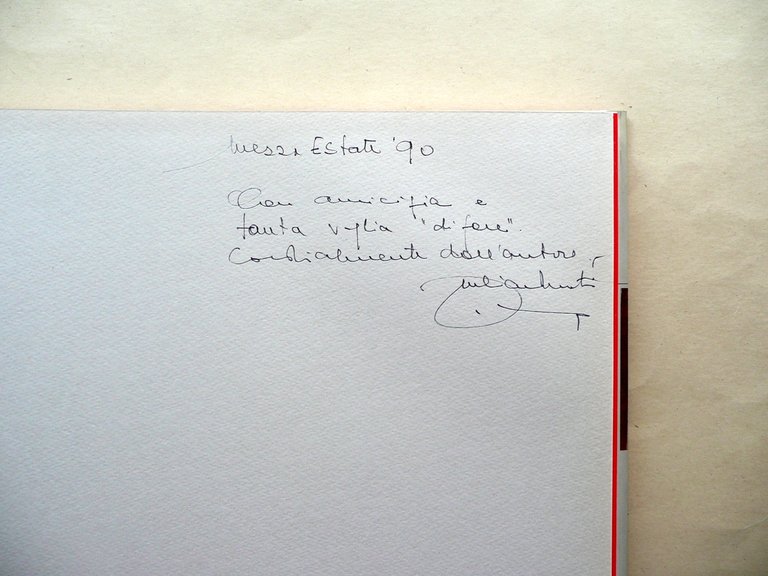 Mezza Estate '90
Con amicizia e
tanta voglia "di fare".
Cordialmente dall'autore,